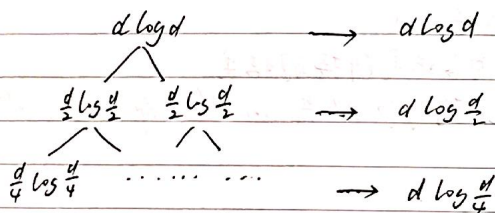 d log d → d log d
d/2 log d/2 d/2 log d/2 → d log d/2
d/4 log d/4 ...... ... → d log d/4